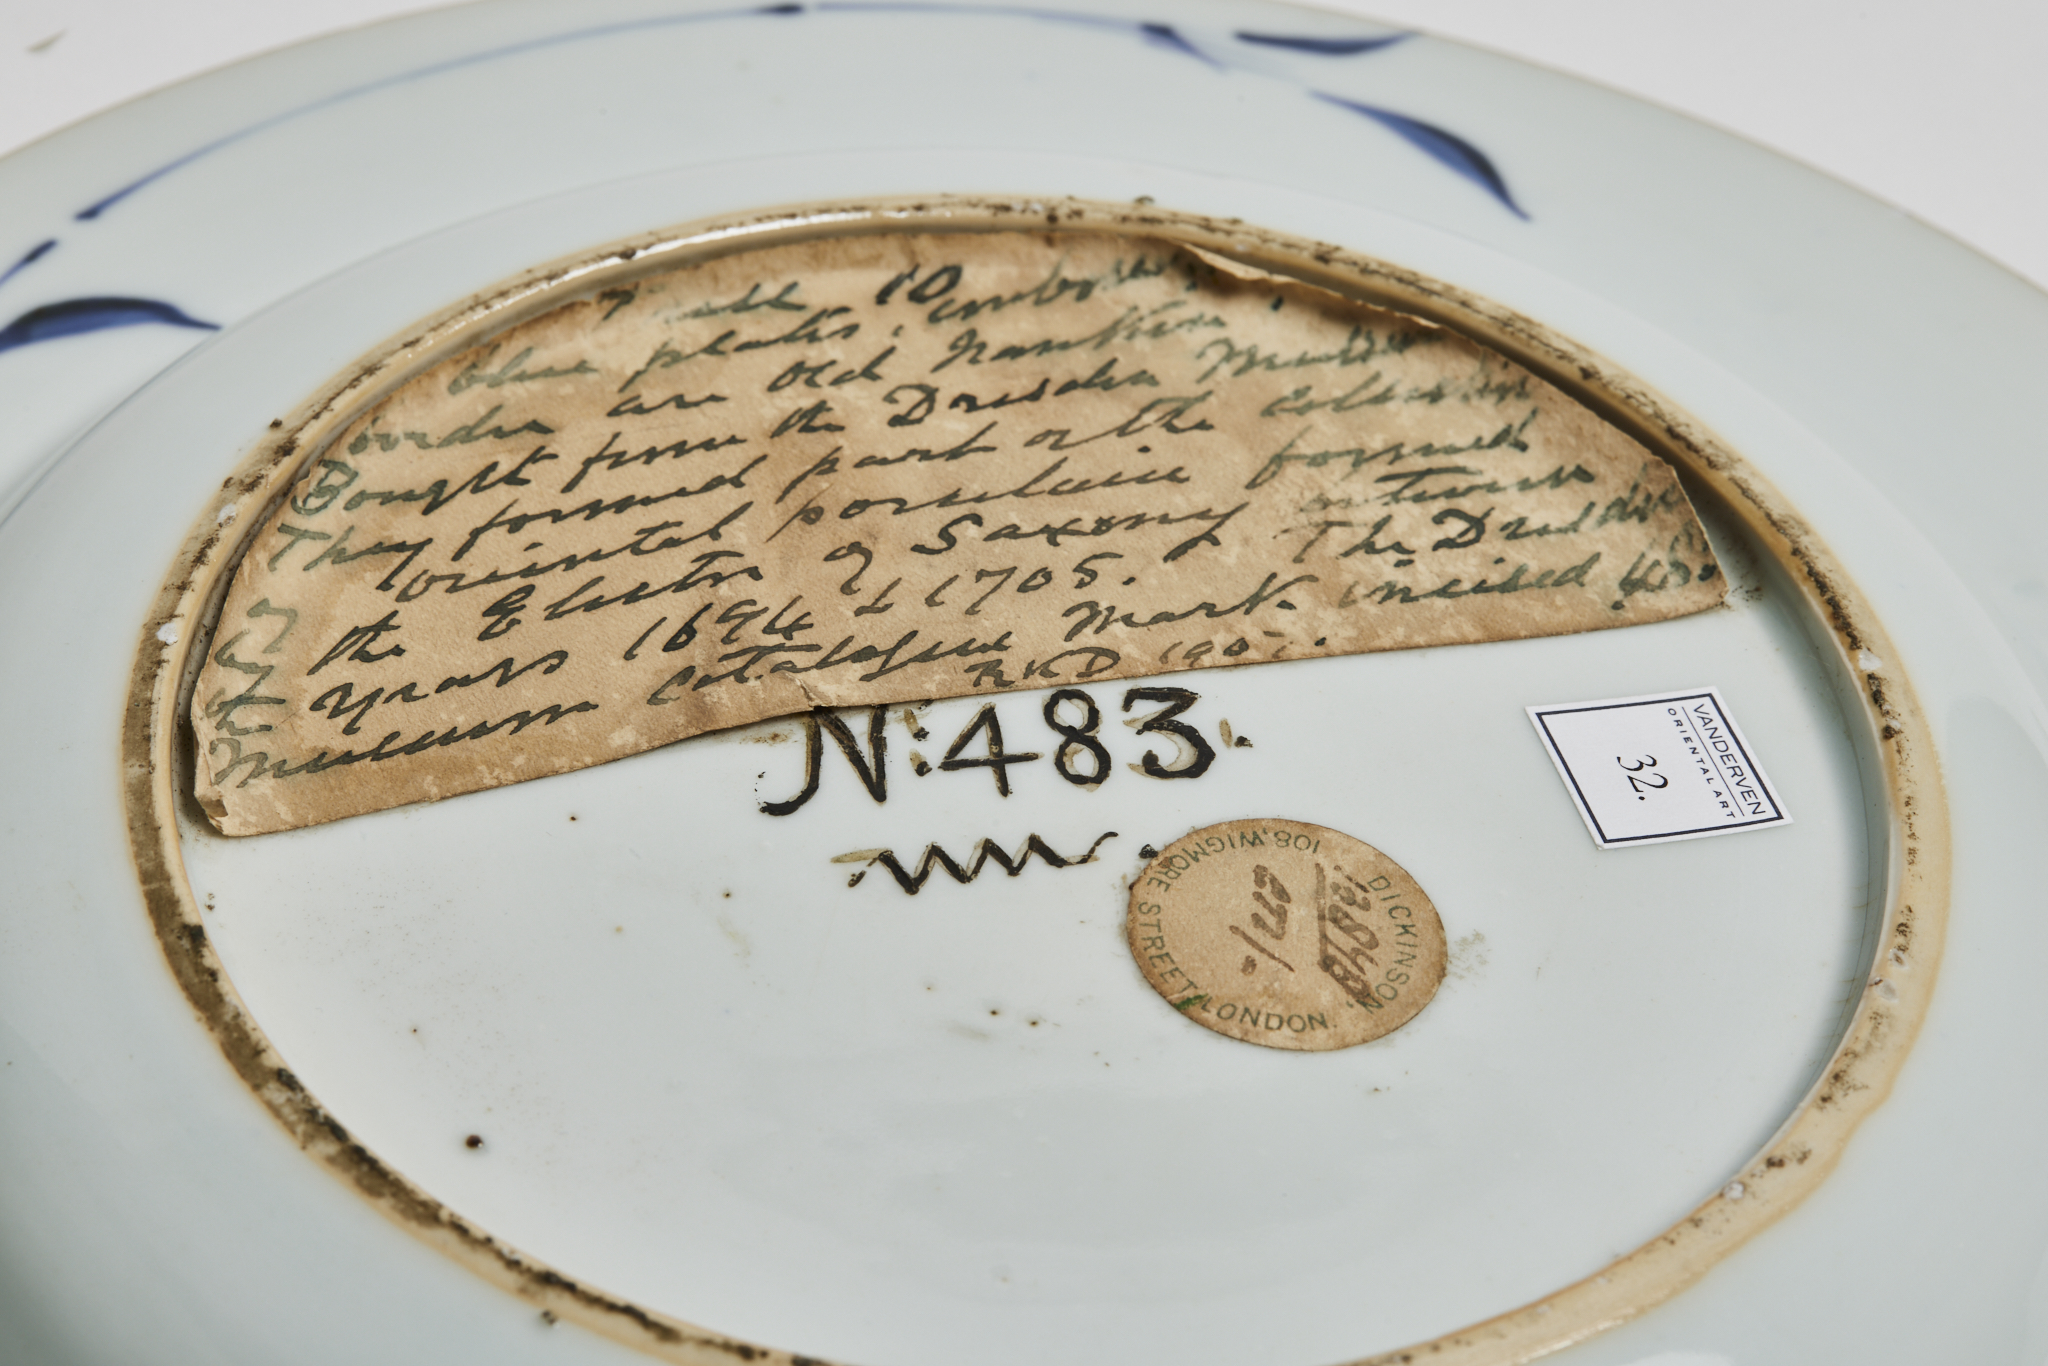 10
blue plates; embossed
border are old Nankin.
Bought from the Dresden Museum
They formed part of the collection
of oriental porcelain formed
by the Elector of Saxony between
the years 1694 & 1705. The Dresden
Museum Catalogue Mark incised 48
RKD 190
N: 483.
VANDERVEN
ORIENTAL ART
32.
DICKINSON,
108, WIGMORE STREET, LONDON.